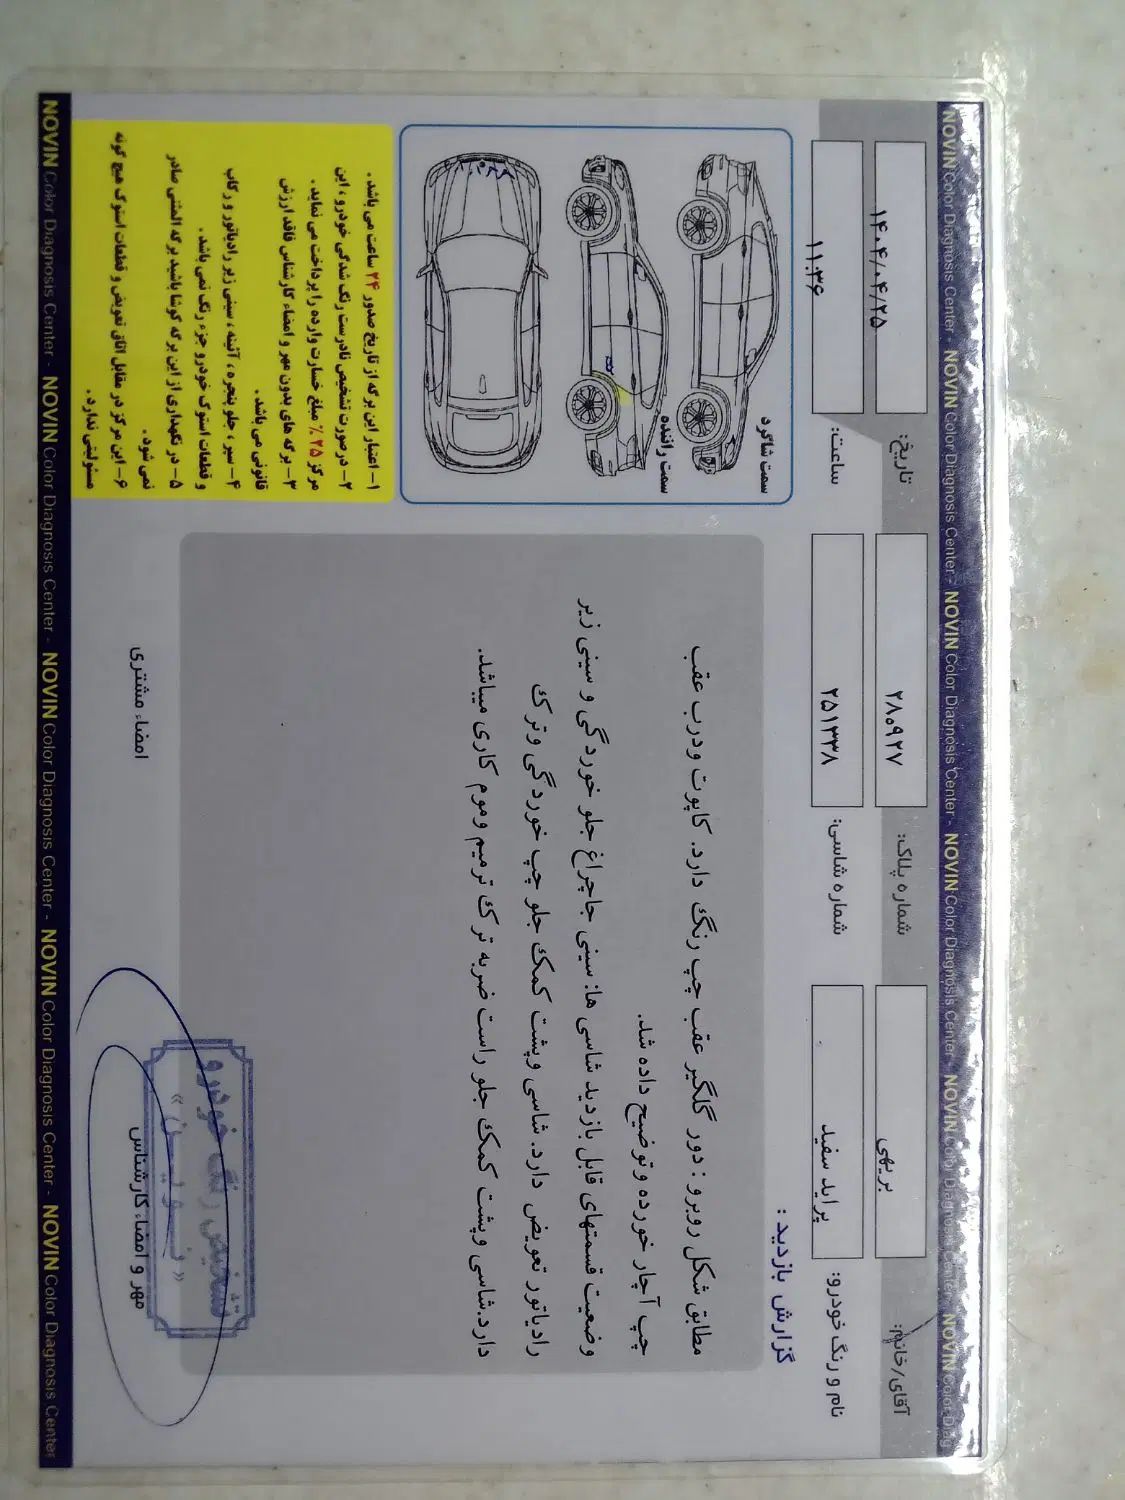 NOVIN Color Diagnosis Center - NOVIN Color Diagnosis Center - NOVIN Color Diagnosis Center - NOVIN Color Diagnosis Center - NOVIN Color Diag
آقای/خانم: بریهی
شماره پلاک: ۲۸۰۹۲۷
تاریخ: ۱۴۰۴/۰۴/۲۵
نام و رنگ خودرو: پراید سفید
شماره شاسی: ۲۵۱۳۳۸
ساعت: ۱۱:۳۶
گزارش بازدید :
مطابق شکل روبرو : دور گلگیر عقب چپ رنگ دارد. کاپوت ودرب عقب
چپ آچار خورده وتوضیح داده شد.
وضعیت قسمتهای قابل بازدید شاسی ها: سینی جاچراغ جلو خوردگی و سینی زیر
رادیاتور تعویض دارد. شاسی وپشت کمک جلو چپ خوردگی وترک
دارد.شاسی وپشت کمک جلو راست ضربه ترک ترمیم وموم کاری میباشد.
سمت شاگرد
سمت راننده
۱- اعتبار این برگه از تاریخ صدور ۲۴ ساعت می باشد .
۲- در صورت تشخیص نادرست رنگ شدگی خودرو ، این
مرکز ۲۵٪ مبلغ خسارت وارده را پرداخت می نماید.
۳- برگه های بدون مهر و امضاء کارشناس فاقد ارزش
قانونی می باشد.
۴- سپر ، جلو پنجره ، آئینه ، سینی زیر رادیاتور و رکاب
و قطعات استوک خودرو جزء رنگ نمی باشد .
۵- در نگهداری از این برگه کوشا باشید برگه المثنی صادر
نمی شود .
۶- این مرکز در مقابل اتاق تعویض و قطعات استوک هیچ گونه
مسئولیتی ندارد.
امضاء مشتری
مهر و امضاء کارشناس
تشخیص رنگ خودرو
« نـویـن »
NOVIN Color Diagnosis Center - NOVIN Color Diagnosis Center - NOVIN Color Diagnosis Center - NOVIN Color Diagnosis Center - NOVIN Color Diagnosis Center